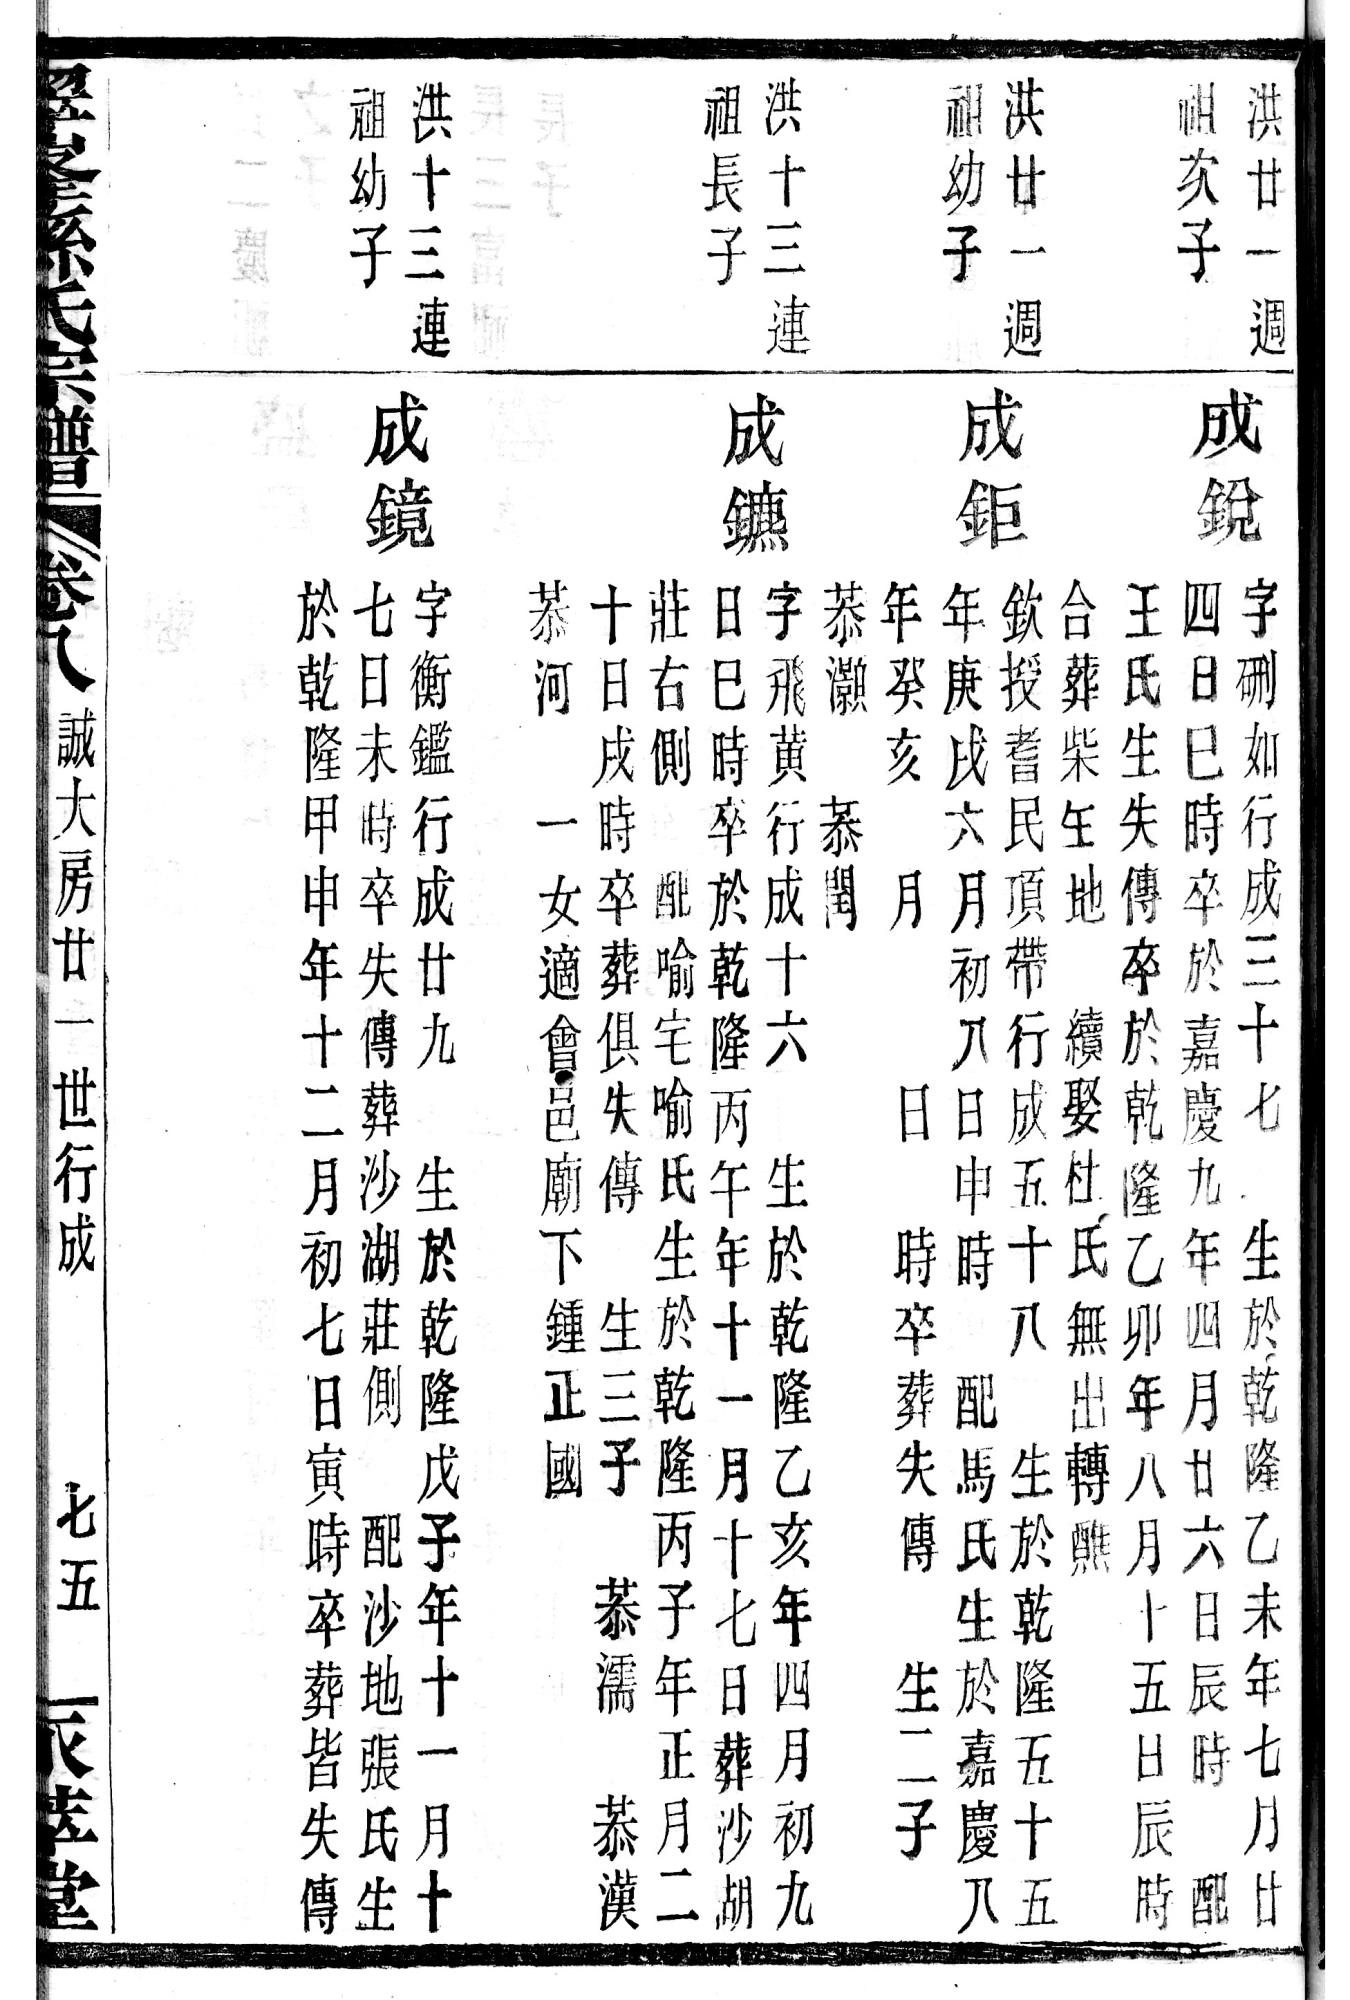 洪廿一週
祖次子
成銳
字硎如行成三十七　生於乾隆乙未年七月廿
四日巳時卒於嘉慶九年四月廿六日辰時　配
王氏生失傳卒於乾隆乙卯年八月十五日辰時
合葬柴 地　續娶杜氏無出轉醮
洪廿一週
祖幼子
成鉅
欽授耆民頂帶行成五十八　生於乾隆五十五
年庚戌六月初八日申時　配馬氏生於嘉慶八
年癸亥　月　　日　時卒葬失傳　生二子
恭灝　恭閏
洪十三連
祖長子
成鑣
字飛黃行成十六　生於乾隆乙亥年四月初九
日巳時卒於乾隆丙午年十一月十七日葬沙湖
莊右側　配喻宅喻氏生於乾隆丙子年正月二
十日戌時卒葬俱失傳　生三子　恭濡　恭漢
恭河　一女適會邑廟下鍾正國
洪十三連
祖幼子
成鏡
字衡鑑行成廿九　生於乾隆戊子年十一月十
七日未時卒失傳葬沙湖莊側　配沙地張氏生
於乾隆甲申年十二月初七日寅時卒葬皆失傳
孫氏宗譜　卷八　誠大房廿一世行成　七五　萃堂